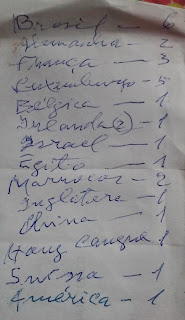 Brasil - 6
Alemanha - 2
França - 3
Luxemburgo - 5
Bélgica - 1
Irlanda (2) - 1
Israel - 1
Egito - 1
Marrocos - 2
Inglaterra - 1
China - 1
Hong Congue 1
Suíssa - 1
América - 1